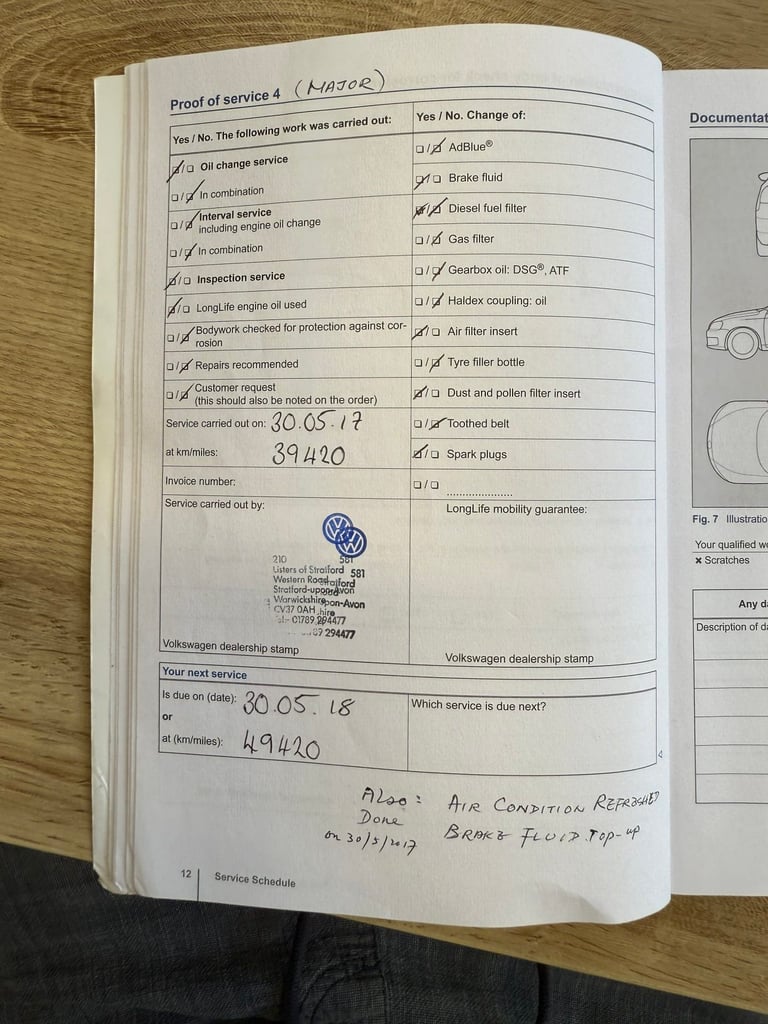 Proof of service 4 (MAJOR)
Yes / No. The following work was carried out:
Oil change service
In combination
Interval service
including engine oil change
In combination
Inspection service
LongLife engine oil used
Bodywork checked for protection against cor-
rosion
Repairs recommended
Customer request
(this should also be noted on the order)
Service carried out on: 30.05.17
at km/miles: 39420
Invoice number:
Service carried out by:
210 581
Listers of Stratford 581
Western Road
Stratford-upon-Avon
Warwickshire
CV37 0AH
Tel:- 01789 294477
294477
Volkswagen dealership stamp
Yes / No. Change of:
AdBlue®
Brake fluid
Diesel fuel filter
Gas filter
Gearbox oil: DSG®, ATF
Haldex coupling: oil
Air filter insert
Tyre filler bottle
Dust and pollen filter insert
Toothed belt
Spark plugs
LongLife mobility guarantee:
Volkswagen dealership stamp
Your next service
Is due on (date): 30.05.18
or
at (km/miles): 49420
Which service is due next?
Also: AIR CONDITION REFRESHED
Done BRAKE FLUID Top-up
on 30/5/2017
12 Service Schedule
Documentat
Fig. 7 Illustratio
Your qualified w
x Scratches
Any da
Description of da